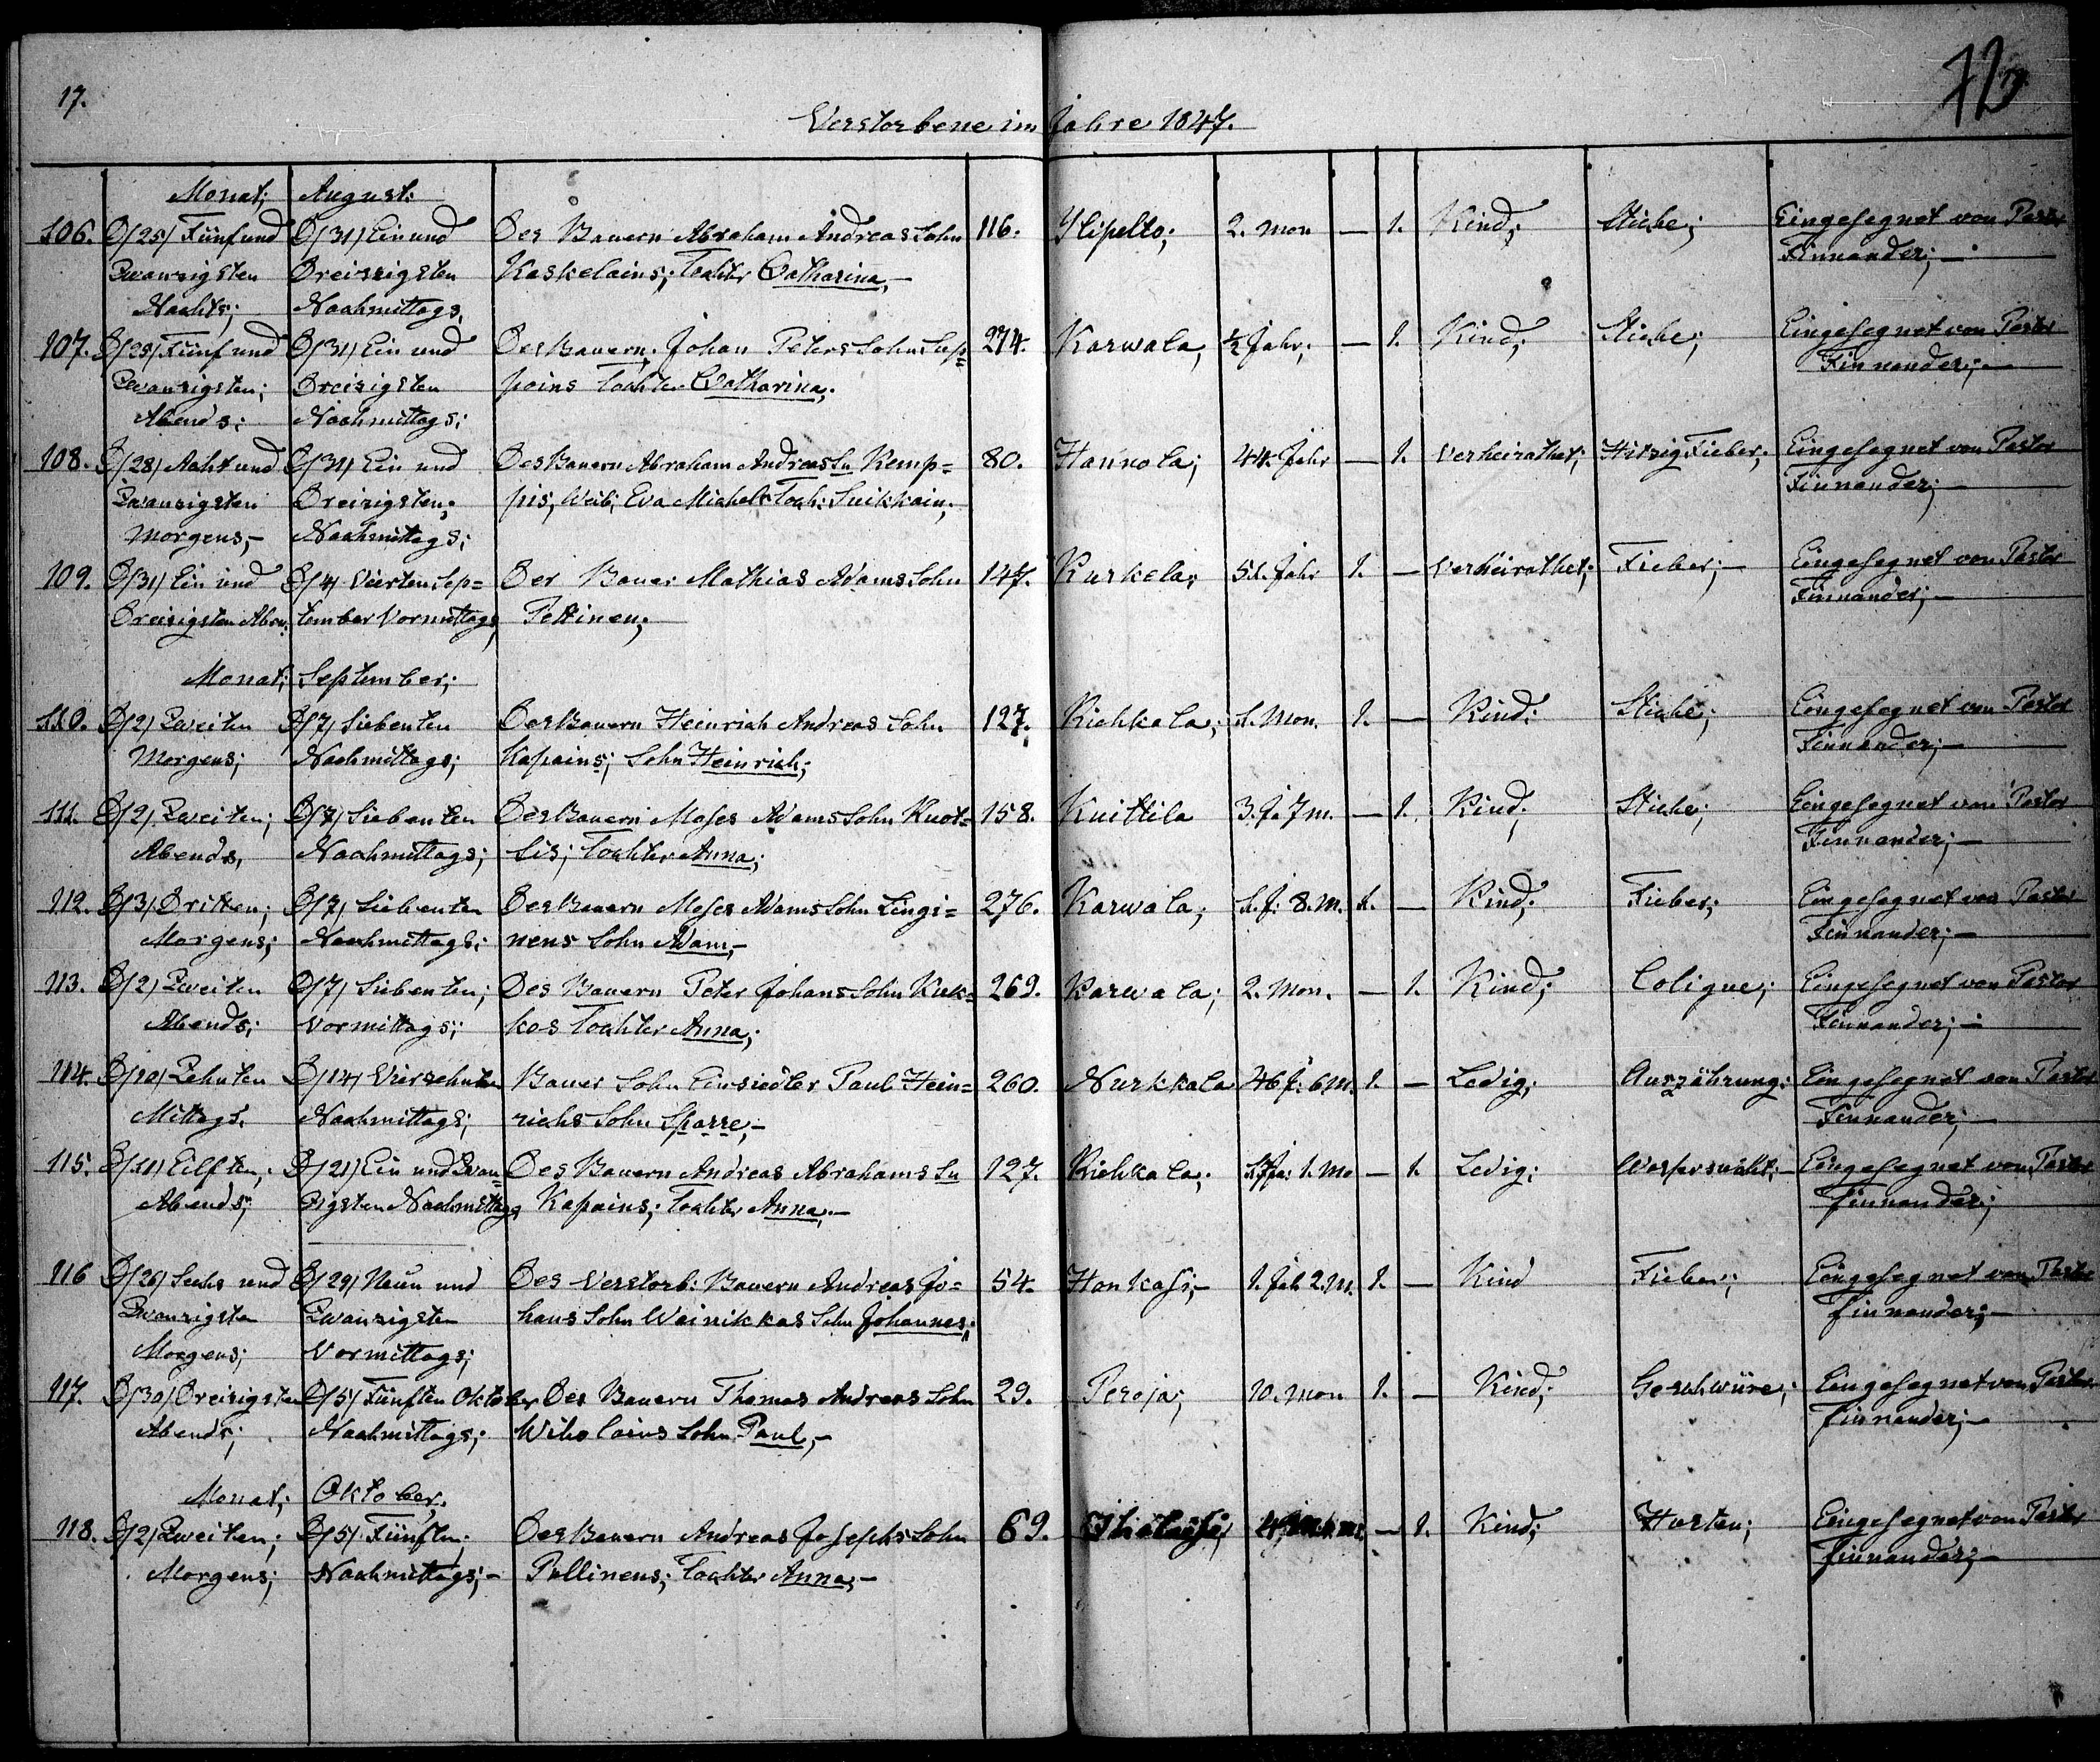 17.
Verstorbene im Jahre 1847.
Monat; August:
106. D/25/ Fünf und D/31/ Ein und Des Bauern Abraham Andreas Sohn 116. Ylipelto; 2. mon — 1. Kind; Stiche; Eingesegnet von Pastor
Zwanzigsten Dreizigsten Kaskelains; Tochter Catharina,— Finnander; —
Nachts; Nachmittags,
107. D/25/ Fünf und D/31/ Ein und Des Bauern, Johan Peters Sohn Sep= 274. Karwala, ½ Jahr; — 1. Kind; Stiche; Eingesegnet von Pastor
Zwanzigsten; Dreizigsten poins Tochter Catharina; Finnander; —
Abends; Nachmittags;
108. D/28/ Acht und D/31/ Ein und Des Bauern Abraham Andreas Sn Kemp= 80. Hannola; 44. Jahr — 1. Verheirathet; Hitzig Fieber; Eingesegnet von Pastor
Zwanzigsten Dreizigsten; pis, Weib; Eva Michels Toch: Suikkain; Finnander; —
Morgens,— Nachmittags;
109. D/31/ Ein und D/4/ Vierten Sep= Der Bauer Mathias Adams Sohn 147. Kurkela; 51. Jahr 1. — Verheirathet; Fieber; — Eingesegnet von Pastor
Dreizigsten Aben: tember Vormittags, Pettinen; Finnander; —
Monat; September;
110. D/2/ Zweiten D/7/ Siebenten Des Bauern Heinrich Andreas Sohn 127. Riehkala; 1. Mon. 1. — Kind; Stiche; Eingesegnet von Pastor
Morgens; Nachmittags; Kapains; Sohn Heinrich; Finnander; —
111. D/2/ Zweiten; D/7/ Siebenten Des Bauern Moses Adams Sohn Knot= 158. Knittila 3. J. 7 m. — 1. Kind; Stiche; Eingesegnet von Pastor
Abends, Nachmittags; sis; Tochter Anna; Finnander; —
112. D/3/ Dritten; D/7/ Siebenten Des Bauern Moses Adams Sohn Lingi= 276. Karwala; 1. J: 8. M. 1. — Kind; Fieber; Eingesegnet von Pastor
Morgens; Nachmittags; nens Sohn Adam,— Finnander; —
113. D/2/ Zweiten D/7/ Siebenten; Des Bauern Peter Johans Sohn Kuk= 269. Karwala; 2. Mon. — 1. Kind; Colique; Eingesegnet von Pastor
Abends; Vormittags; kos Tochter Anna; Finnander; —
114. D/10/ Zehnten D/14/ Vierzehnten Bauer Sohn Einsiedler Paul Hein= 260. Nurkkala 46 J: 6 M. 1. — Ledig; Auszährung: Eingesegnet von Pastor
Mittags. Nachmittags; richs Sohn Sparre,— Finnander; —
115. D/11/ Eilften, D/21/ Ein und Zwan= Des Bauern Andreas Abrahams Sn 127. Riehkala; 1. Mo — 1. Ledig; Wassersucht; — Eingesegnet von Pastor
Abends; zigsten Nachmittags Kapains; Tochter Anna,— Finnander;
116 D/26/ Sechs und D/29/ Neun und Des Verstorb: Bauern Andreas Jo= 54. Honkasi,— 1. Jah 2. M. 1. — Kind Fieber; Eingesegnet von Pastor
Zwanzigsten Zwanzigsten hans Sohn Wainikkas Sohn Johannes; finnander; —
Morgens; Vormittags;
117. D/30/ Dreizigsten D/5/ Fünften Oktober Des Bauern Thomas Andreas Sohn 29. Peroja; 10. Mon 1. — Kind; Geschwüre; Eingesegnet von Pastor
Abends; Nachmittags; Wiholains Sohn Paul,— finnander; —
Monat; Oktober.
118. D/2/ Zweiten; D/5/ Fünften: Des Bauern Andreas Josephs Sohn 69. — 1. Kind; Husten; Eingesegnet von Pastor
Morgens; Nachmittags; — Pullinens; Tochter Anna,— finnander; —